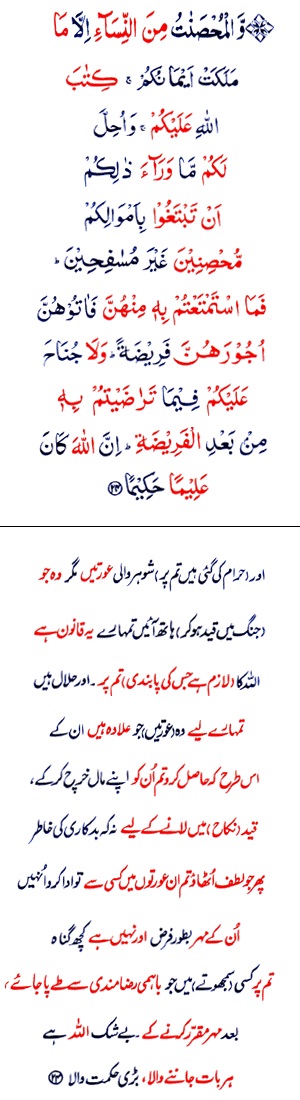 وَّالْمُحْصَنٰتُ مِنَ النِّسَآءِ اِلَّا مَا
مَلَكَتْ اَيْمَانُكُمْ ۚ كِتٰبَ
اللّٰهِ عَلَيْكُمْ ۚ وَاُحِلَّ
لَكُمْ مَّا وَرَآءَ ذٰلِكُمْ
اَنْ تَبْتَغُوْا بِاَمْوَالِكُمْ
مُّحْصِنِيْنَ غَيْرَ مُسٰفِحِيْنَ ؕ
فَمَا اسْتَمْتَعْتُمْ بِهٖ مِنْهُنَّ فَاٰتُوْهُنَّ
اُجُوْرَهُنَّ فَرِيْضَةً ؕ وَلَا جُنَاحَ
عَلَيْكُمْ فِيْمَا تَرٰضَيْتُمْ بِهٖ
مِنْۢ بَعْدِ الْفَرِيْضَةِ ؕ اِنَّ اللّٰهَ كَانَ
عَلِيْمًا حَكِيْمًا ﴿۲۴﴾
اور (حرام کی گئی ہیں تم پر) شوہر والی عورتیں مگر وہ جو
(جنگ میں قید ہوکر) ہاتھ آئیں تمہارے یہ قانون ہے
اللہ کا (لازم ہے جس کی پابندی) تم پر ۔ اور حلال ہیں
تمہارے لیے وہ (عورتیں) جو علاوہ ہیں ان کے
اس طرح کہ حاصل کرو تم اُن کو اپنے مال خرچ کرکے،
قید (نکاح) میں لانے کے لیے نہ کہ بدکاری کی خاطر
پھر جو لطف اُٹھاؤ تم ان عورتوں میں کسی سے تو ادا کرو اُنہیں
اُن کے مہر بطور فرض اور نہیں ہے کچھ گناہ
تم پر کسی (سمجھوتے) میں جو باہمی رضامندی سے طے پا جائے،
بعد مہر مقرر کرنے کے ۔ بے شک اللہ ہے
ہر بات جاننے والا، بڑی حکمت والا ﴿۲۴﴾